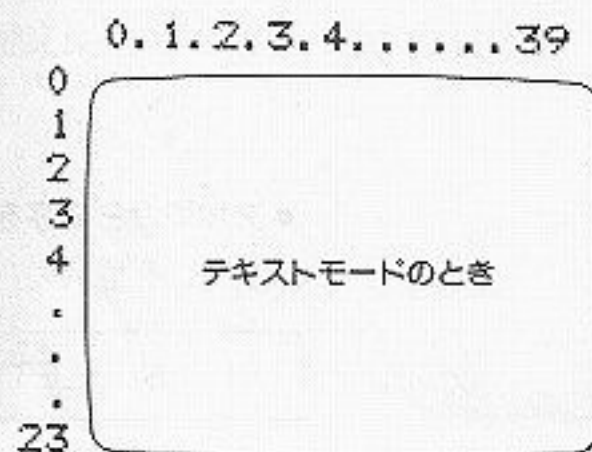 0.1.2.3.4......39
0
1
2
3
4
テキストモードのとき
.
.
.
23